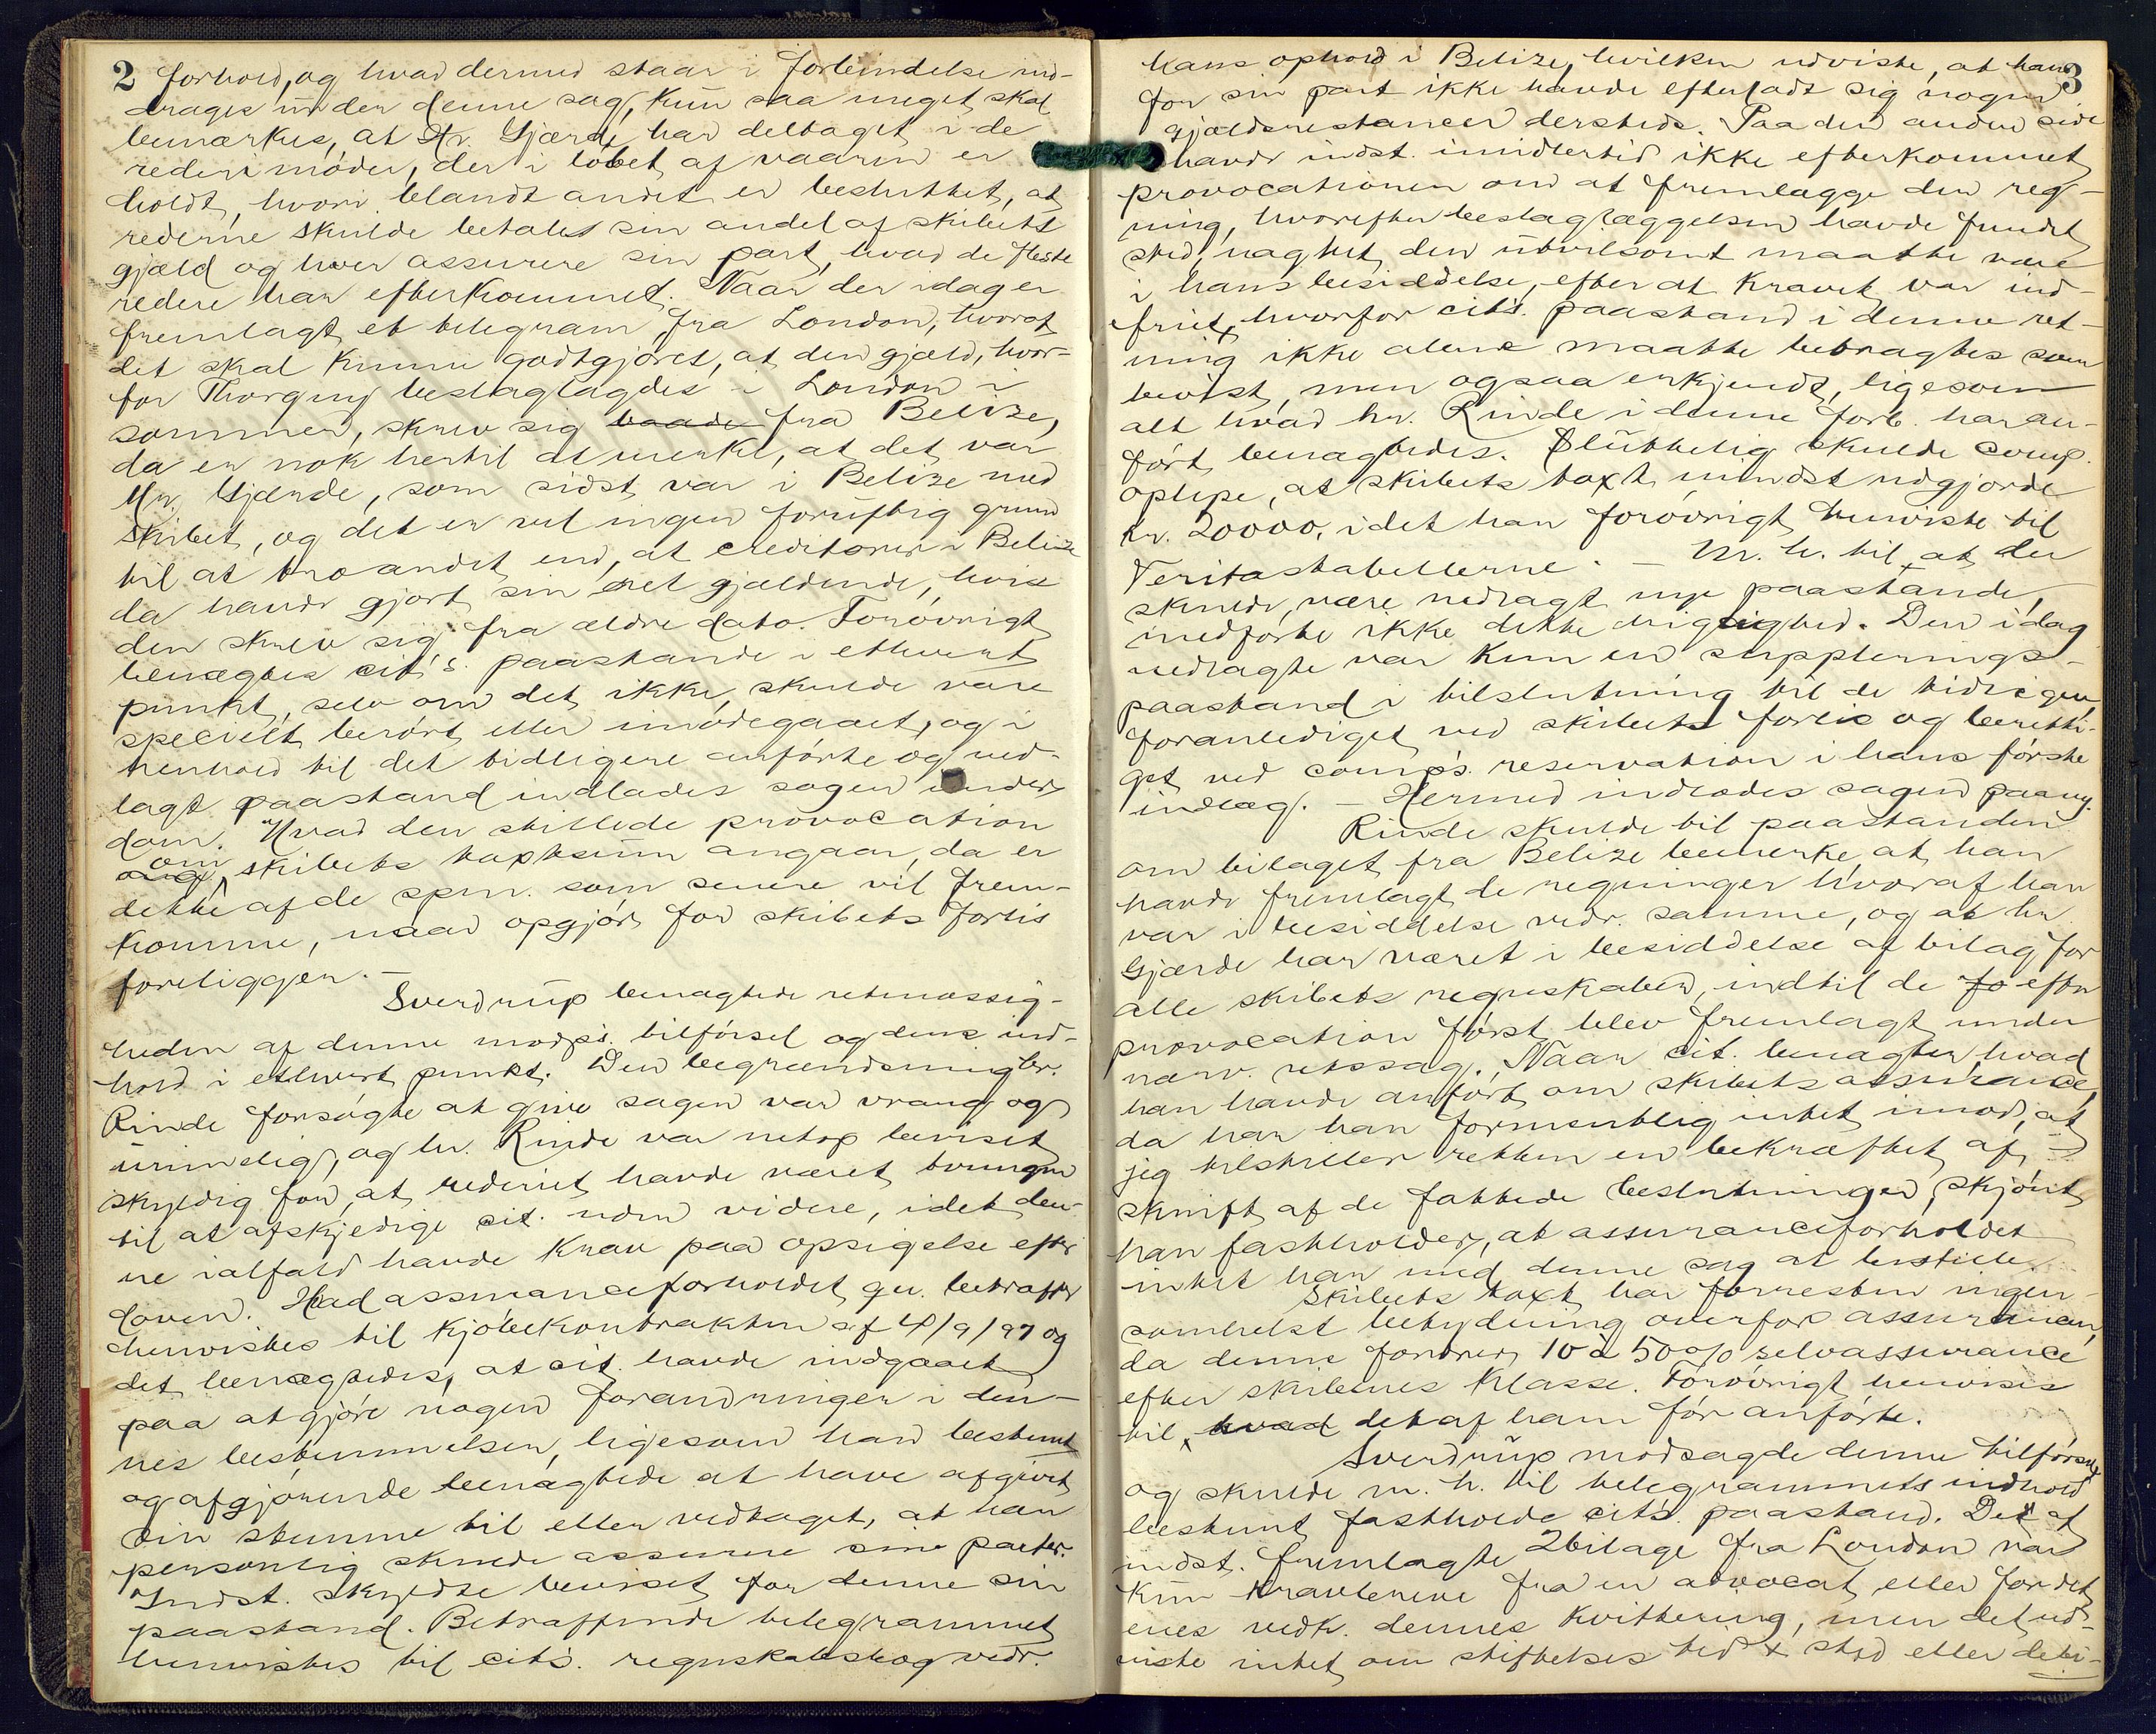 2
forhold, og hvad dermed staar i forbindelse ind-
drages under denne sag, kun saa meget skal
bemærkes, at Hr. Gjærde har deltaget i de
rederimøder, der i løbet af vaaren er
holdt, hvori blandt andet er besluttet, at
rederne skulde betales sin andel af skibets
gjæld og hver assurere sin part, hvad de fleste
redere har efterkommet. Naar der idag er
fremlagt et telegram fra London, hvoraf
det skal kunne godtgjøres, at den gjæld, hvor-
for Thorgny beslaglagdes i London i
sommer, skrev sig baade fra Belize,
da er nok hertil at merke, at det var
Hr. Gjærde, som sidst var i Belize med
skibet, og det er vel ingen fornuftig grund
til at tro andet end, at creditorer i Belize
da havde gjort sin ret gjældende, hvis
den skrev sig fra ældre dato. Forøvrigt
benægtes cit's. paastande i ethvert
punkt, selv om det ikke skulde være
specielt berørt eller imødegaaet, og i
henhold til det tidligere anførte og ned-
lagt paastand indlades sagen under
dom. Hvad den stillede provocation
om skibets taxtsum angaar, da er
dette af de spm. som senere vil frem-
komme, naar opgjør for skibets forlis
foreligger. —
Sverdrup benægtede retmæssig-
heden af denne modp's. tilførsel og dens ind-
hold i ethvert punkt. Den begrændsning hr.
Rinde forsøgte at give sagen var vrang og
urimelig, og hr. Rinde var netop beviset
skyldig for, at rederiet havde været tvungen
til at afskjedige cit. uden videre, idet den-
ne ialfald havde krav paa opsigelse efter
loven. Hvad assuranceforholdet gu. betræffer
henvistes til kjøbekontrakten af 4/9/97 og
det benægtedes, at cit. havde indgaaet
paa at gjøre nogen forandringer i den-
nes bestemmelser, ligesom han bestemt
og afgjørende benægtede at have afgivet
sin stemme til eller vedtaget, at han
personlig skulde assurere sine parter.
Indst. skyldte beviset for denne sin
paastand. Betræffende telegrammet
henvistes til cits. regnskabsbog vedr.
3
hans ophold i Belize, hvilken udviste, at han
for sin part ikke havde efterladt sig nogen
gjældsrestancer dersteds. Paa den anden side
havde indst. imidlertid ikke efterkommet
provocationen om at fremlægge den reg-
ning, hvorefter beslaglæggelsen havde fundet
sted, uagtet den utvilsomt maatte være
i hans besiddelse, efterat kravet var ind-
friet, hvorfor cits. paastand i denne ret-
ning ikke alene maatte betragtes som
bevist, men ogsaa erkjendt, ligesom
alt hvad hr. Rinde i denne forb. har an-
ført benægtedes. Sluttelig skulde comp.
oplyse, at skibets taxt mindst udgjorde
kr. 20000, idet han forøvrigt henviste til
Veritastabellerne. — M. h. til at der
skulde være nedlagt nye paastande,
medførte ikke dette rigtighed. Den idag
nedlagte var kun en supplerings-
paastand i tilslutning til de tidligere,
foranlediget ved skibets forlis og beretti-
get ved comp's. reservation i hans første
indlæg. — Hermed indlodes sagen paany.
Rinde skulde til paastanden
om bilaget fra Belize bemerke, at han
havde fremlagt de regninger hvoraf han
var i besiddelse vedr. samme, og at hr.
Gjærde har været i besiddelse af bilag for
alle skibets regnskaber, indtil de fo efter
provocation først blev fremlagt under
nærv. retssag. Naar cit. benægter, hvad
han havde anført om skibets assurance,
da har han formentlig intet imod, at
jeg tilstiller retten en bekræftet af-
skrift af de fattede beslutninger, skjønt
han fastholder, at assuranceforholdet
intet har med denne sag at bestille.
Skibets taxt har forresten ingen-
somhelst betydning overfor assurancen,
da denne fordrer 10 à 50% selvassurance
efter skibenes klasse. Forøvrigt henvises
til hvad det af ham før anførte.
Sverdrup modsagde denne tilførsel
og skulde m. h. til telegrammets indhold
bestemt fastholde cits. paastand. De af
indst. fremlagte 2 bilage fra London var
kun kravbreve fra en advocat eller for det
enes vedk. dennes kvittering, men det ud-
viste intet om stiftelses tid & sted eller debi-